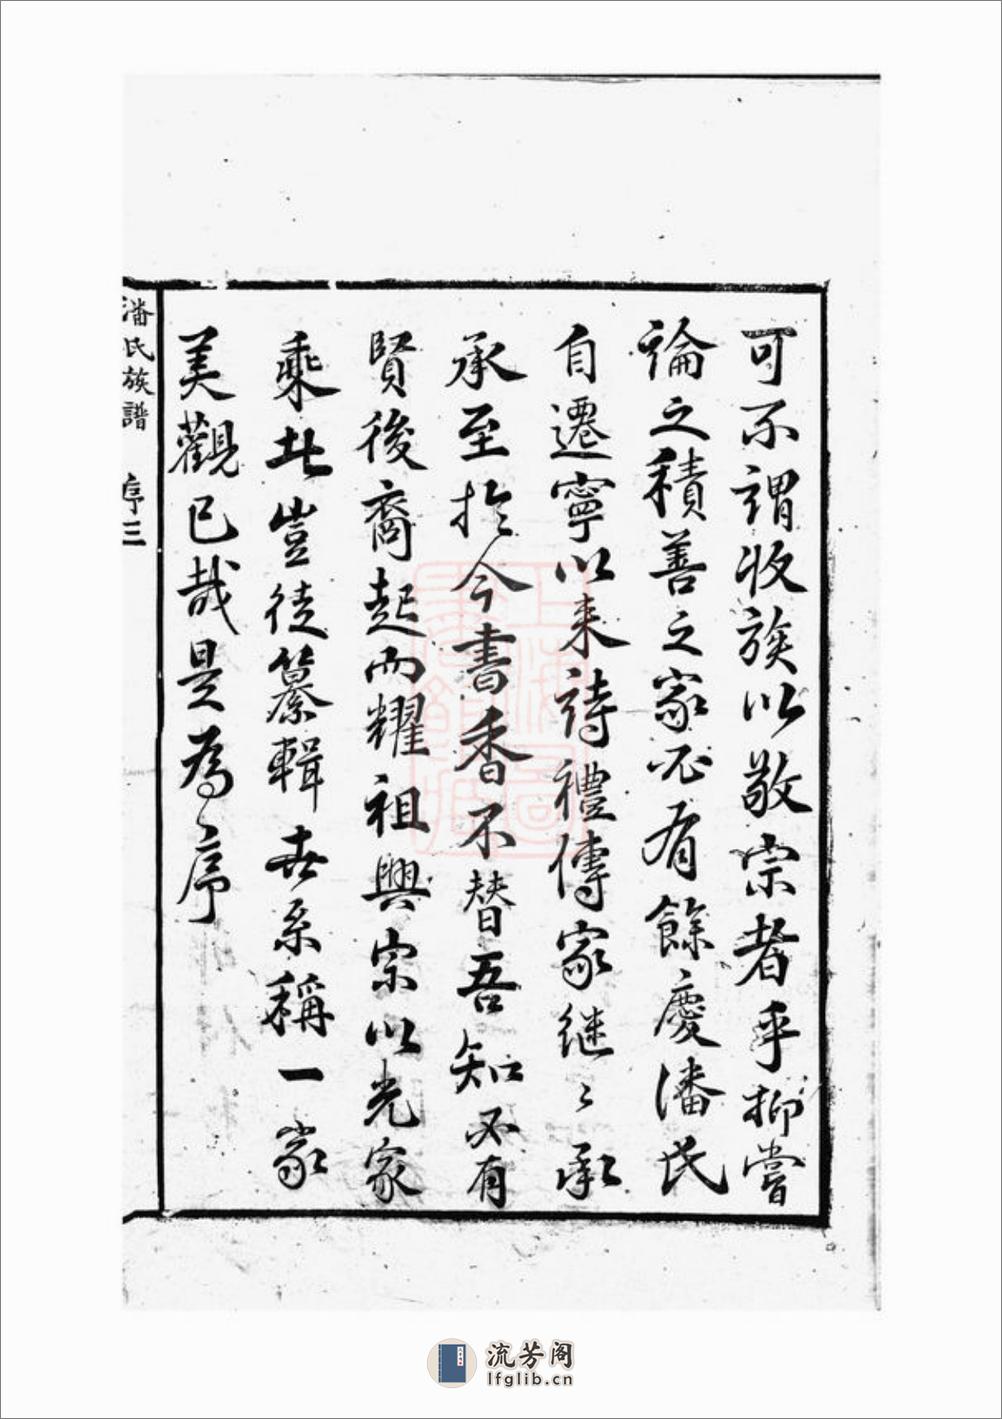 可不謂收族以敬宗者乎抑嘗
論之積善之家必有餘慶潘氏
自遷寧以来詩禮傳家继〻承
承至於今書香不替吾知必有
賢後裔起而耀祖興宗以光家
乘此豈徒纂輯世系稱一家
美觀已哉是為序
潘氏族譜 序三
流芳阁
lfglib.cn